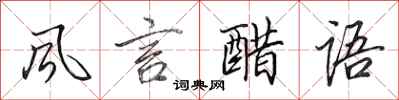 风言醋语
词典网